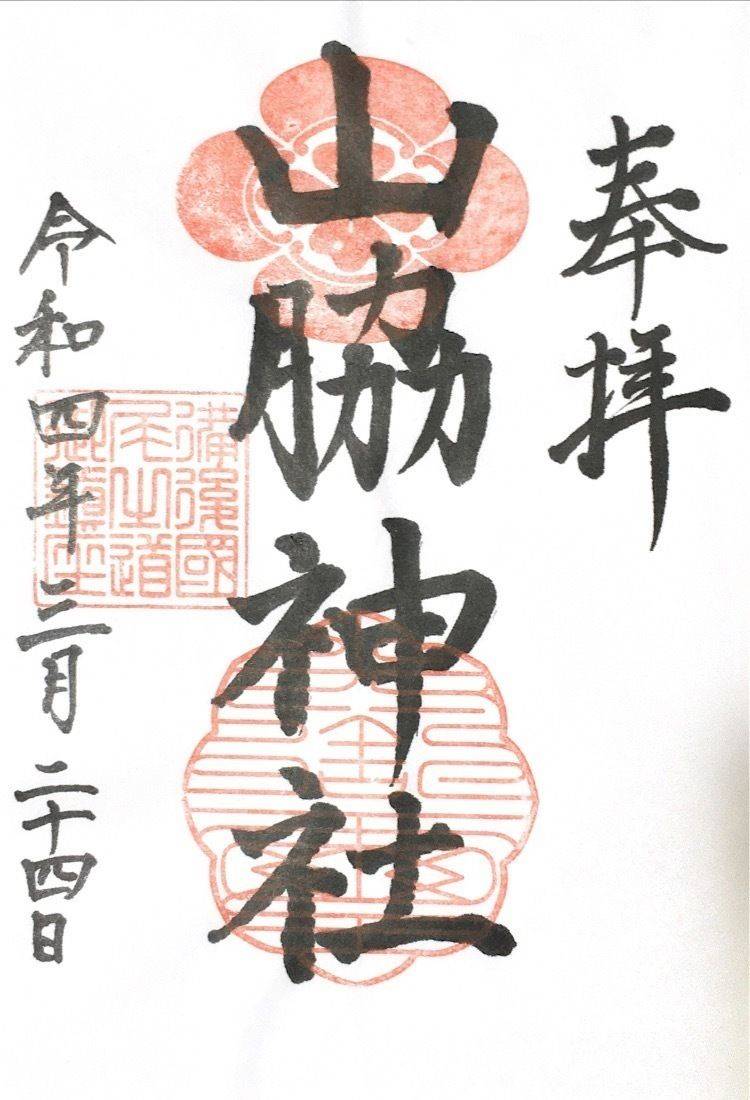 奉拝
山脇神社
備後國
尾之道
令和四年三月二十四日